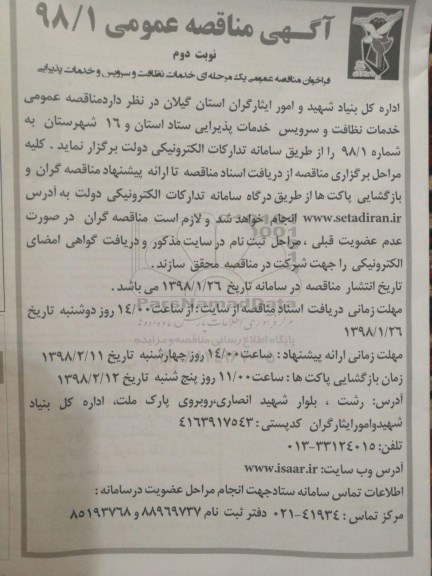 آگهی مناقصه عمومی ۹۸/۱
نوبت دوم
فراخوان مناقصه عمومی یک مرحله ای خدمات نظافت و سرویس و خدمات پذیرایی
اداره کل بنیاد شهید و امور ایثارگران استان گیلان در نظر دارد مناقصه عمومی
خدمات نظافت و سرویس خدمات پذیرایی ستاد استان و ۱۶ شهرستان به
شماره ۹۸/۱ را از طریق سامانه تدارکات الکترونیکی دولت برگزار نماید . کلیه
مراحل برگزاری مناقصه از دریافت اسناد مناقصه تا ارائه پیشنهاد مناقصه گران و
بازگشایی پاکت ها از طریق درگاه سامانه تدارکات الکترونیکی دولت به آدرس
www.setadiran.ir انجام خواهد شد و لازم است مناقصه گران در صورت
عدم عضویت قبلی ، مراحل ثبت نام در سایت مذکور و دریافت گواهی امضای
الکترونیکی را جهت شرکت در مناقصه محقق سازند .
تاریخ انتشار مناقصه در سامانه تاریخ ۱۳۹۸/۱/۲۶ می باشد .
ParsNamadData
مهلت زمانی دریافت اسناد مناقصه از سایت : از ساعت ۱۴/۰۰ روز دوشنبه تاریخ
۱۳۹۸/۱/۲۶
پایگاه اطلاع رسانی مناقصه و مزایده
مهلت زمانی ارائه پیشنهاد : ساعت ۱۴/۰۰ روز چهارشنبه تاریخ ۱۳۹۸/۲/۱۱
زمان بازگشایی پاکت ها : ساعت ۱۱/۰۰ روز پنج شنبه تاریخ ۱۳۹۸/۲/۱۲
آدرس: رشت ، بلوار شهید انصاری،روبروی پارک ملت، اداره کل بنیاد
شهیدوامورایثارگران کدپستی : ۴۱۶۳۹۱۷۵۴۳
تلفن: ۳۳۱۲۴۰۱۵-۰۱۳
آدرس وب سایت: www.isaar.ir
اطلاعات تماس سامانه ستادجهت انجام مراحل عضویت درسامانه :
مرکز تماس : ۴۱۹۳۴-۰۲۱ دفتر ثبت نام ۸۸۹۶۹۷۳۷ و ۸۵۱۹۳۷۶۸